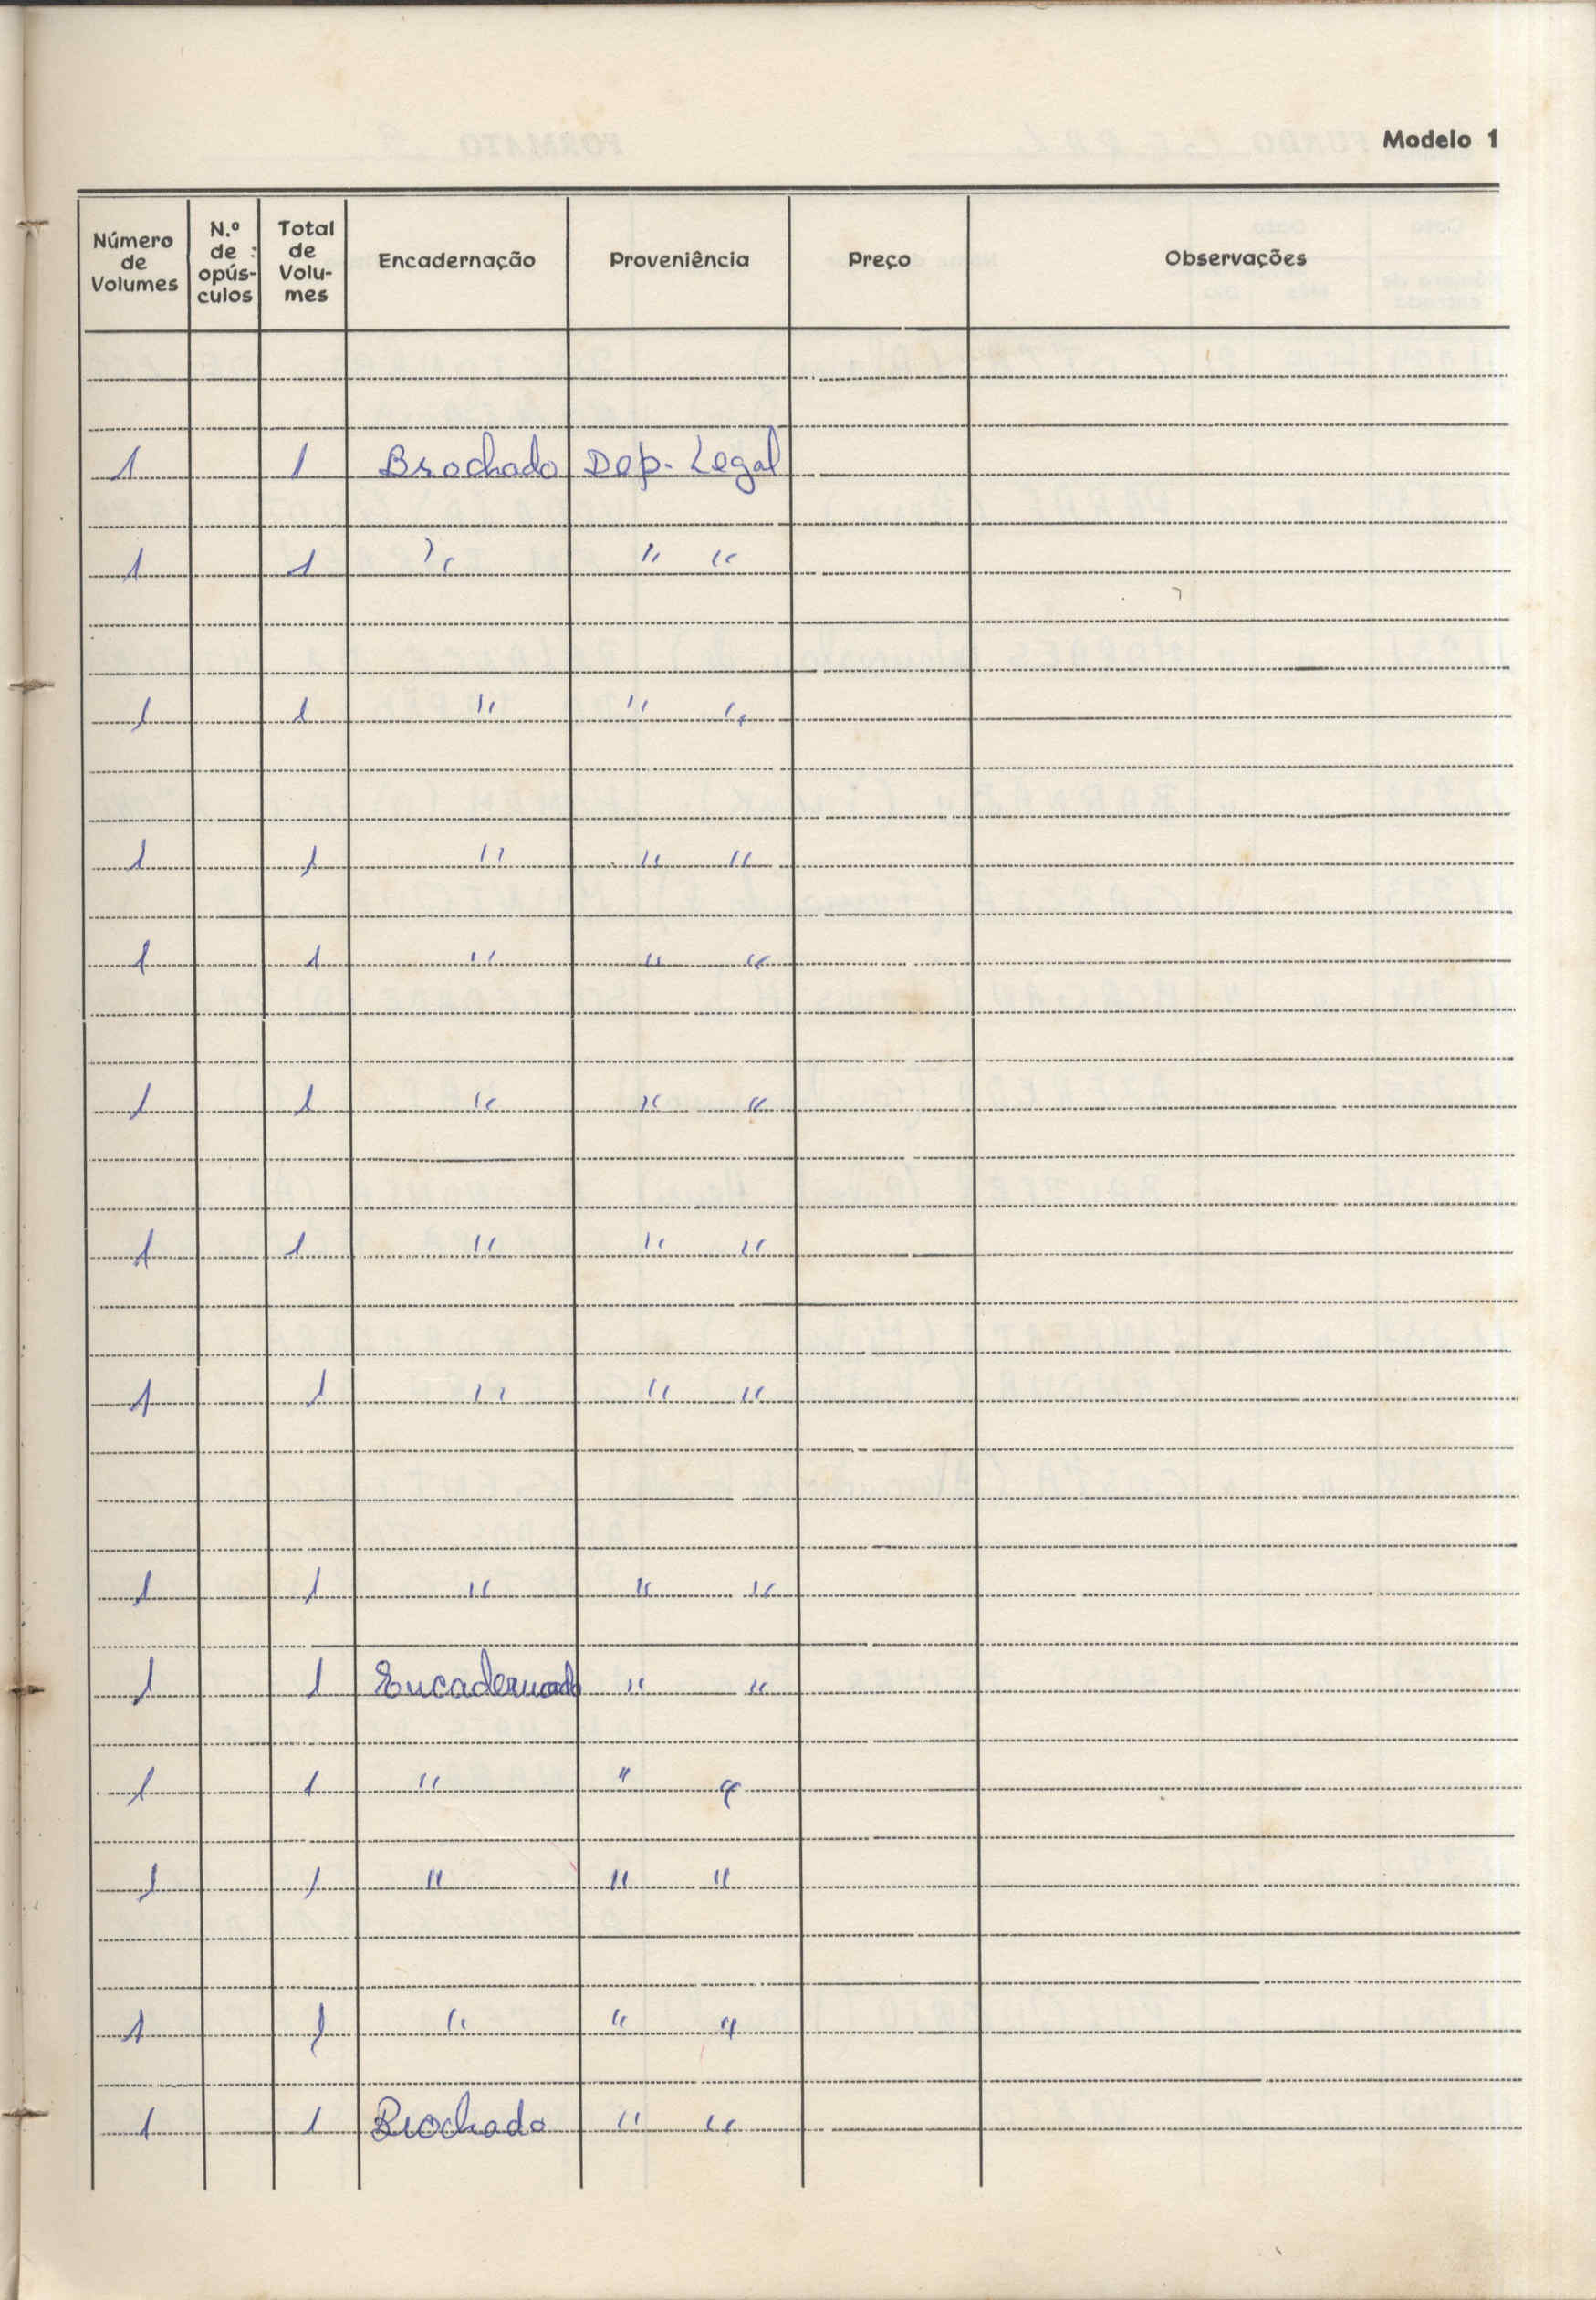 Modelo 1
Número de Volumes | N.º de opús-culos | Total de Volu-mes | Encadernação | Proveniência | Preço | Observações
1 1 Brochado Dep. Legal
1 1 " " "
1 1 " " "
1 1 " " "
1 1 " " "
1 1 " " "
1 1 " " "
1 1 " " "
1 1 " " "
1 1 Encadernado " "
1 1 " " "
1 1 " " "
1 1 " " "
1 1 Brochado " "